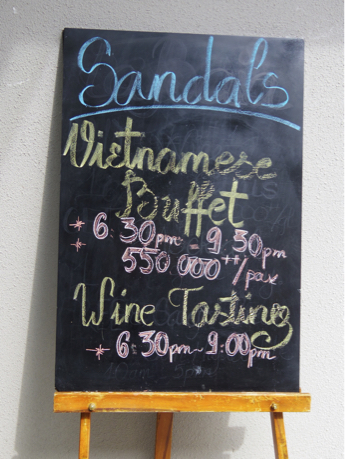 Sandals
Vietnamese
Buffet
* 6:30pm - 9:30pm
* 550 000++/pax
Wine Tasting
* 6:30pm ~ 9:00pm